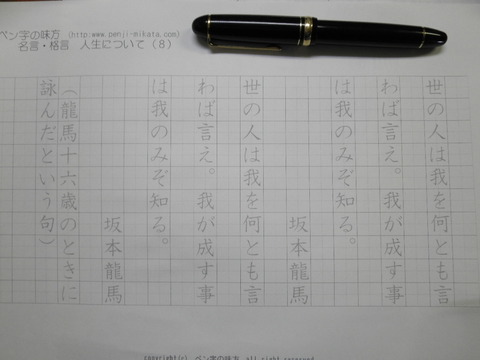 ペン字の味方 (http:www.penji-mikata.com)
名言・格言 人生について(8)
世の人は我を何とも言
わば言え。我が成す事
は我のみぞ知る。
坂本龍馬
世の人は我を何とも言
わば言え。我が成す事
は我のみぞ知る。
坂本龍馬
(龍馬十六歳のときに
詠んだという句)
Copyright(c) ペン字の味方 all right reserved